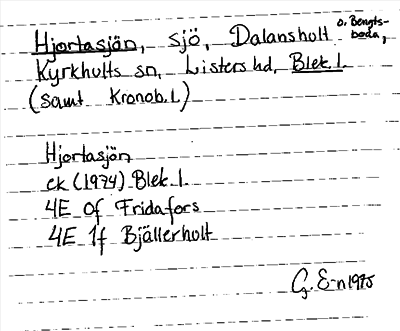 Hjortasjön, sjö, Dalansholt o. Bengts-
boda,
Kyrkhults sn, Listers hd, Blek. l.
(samt Kronob. l.)
Hjortasjön
ek (1974) Blek. l.
4E 0f Fridafors
4E 1f Bjällerholt
G. E-n 1975